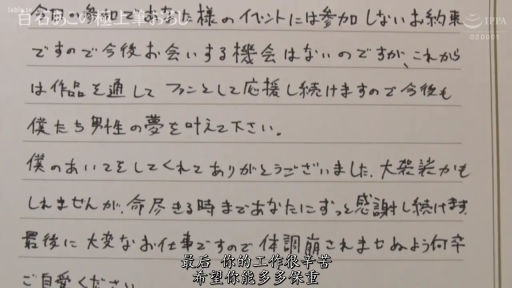 白石あこの極上筆おろし
TPPA
今回の参加であなた様のイベントには参加しないお約束
ですので今後お会いする機会はないのですが、これから
は作品を通してファンとして応援し続けますので今後も
僕たち男性の夢を叶えて下さい。
僕のあいてをしてくれてありがとうございました。大袈裟かも
しれませんが、命尽きる時まであなたにずっと感謝し続けます。
最後に大変なお仕事ですので体調崩されませぬよう何卒
ご自愛ください
最后 你的工作很辛苦
希望你能多多保重